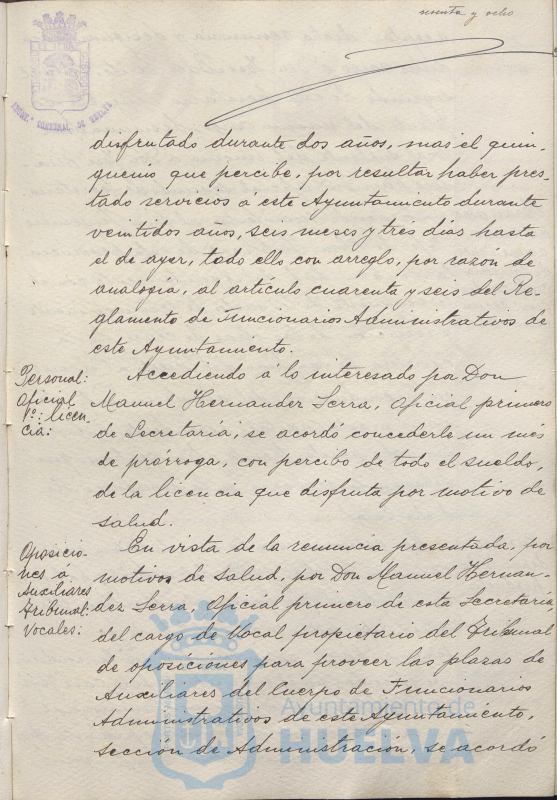 nventa y ocho
disfrutado durante dos años, mas el quin-
quenio que percibe, por resultar haber pres-
tado servicios á este Ayuntamiento durante
veintidos años, seis meses y tres dias hasta
el de ayer, todo ello con arreglo, por razón de
analogía, al artículo cuarenta y seis del Re-
glamento de Funcionarios Administrativos de
este Ayuntamiento.
Personal:
Oficial
1º: licen-
cia:
Accediendo á lo interesado por Don
Manuel Hernandez Serra, Oficial primero
de Secretaría, se acordó concederle un més
de prórroga, con percibo de todo el sueldo,
de la licencia que disfruta por motivo de
salud.
Oposicio-
nes á
Auxiliares
Tribunal:
Vocales:
En vista de la renuncia presentada, por
motivos de salud, por Don Manuel Hernan-
dez Serra, Oficial primero de esta Secretaria
del cargo de Vocal propietario del Tribunal
de oposiciónes para proveer las plazas de
Auxiliares del Cuerpo de Funcionarios
Administrativos de este Ayuntamiento,
sección de Administración, se acordó
Ayuntamiento de
HUELVA